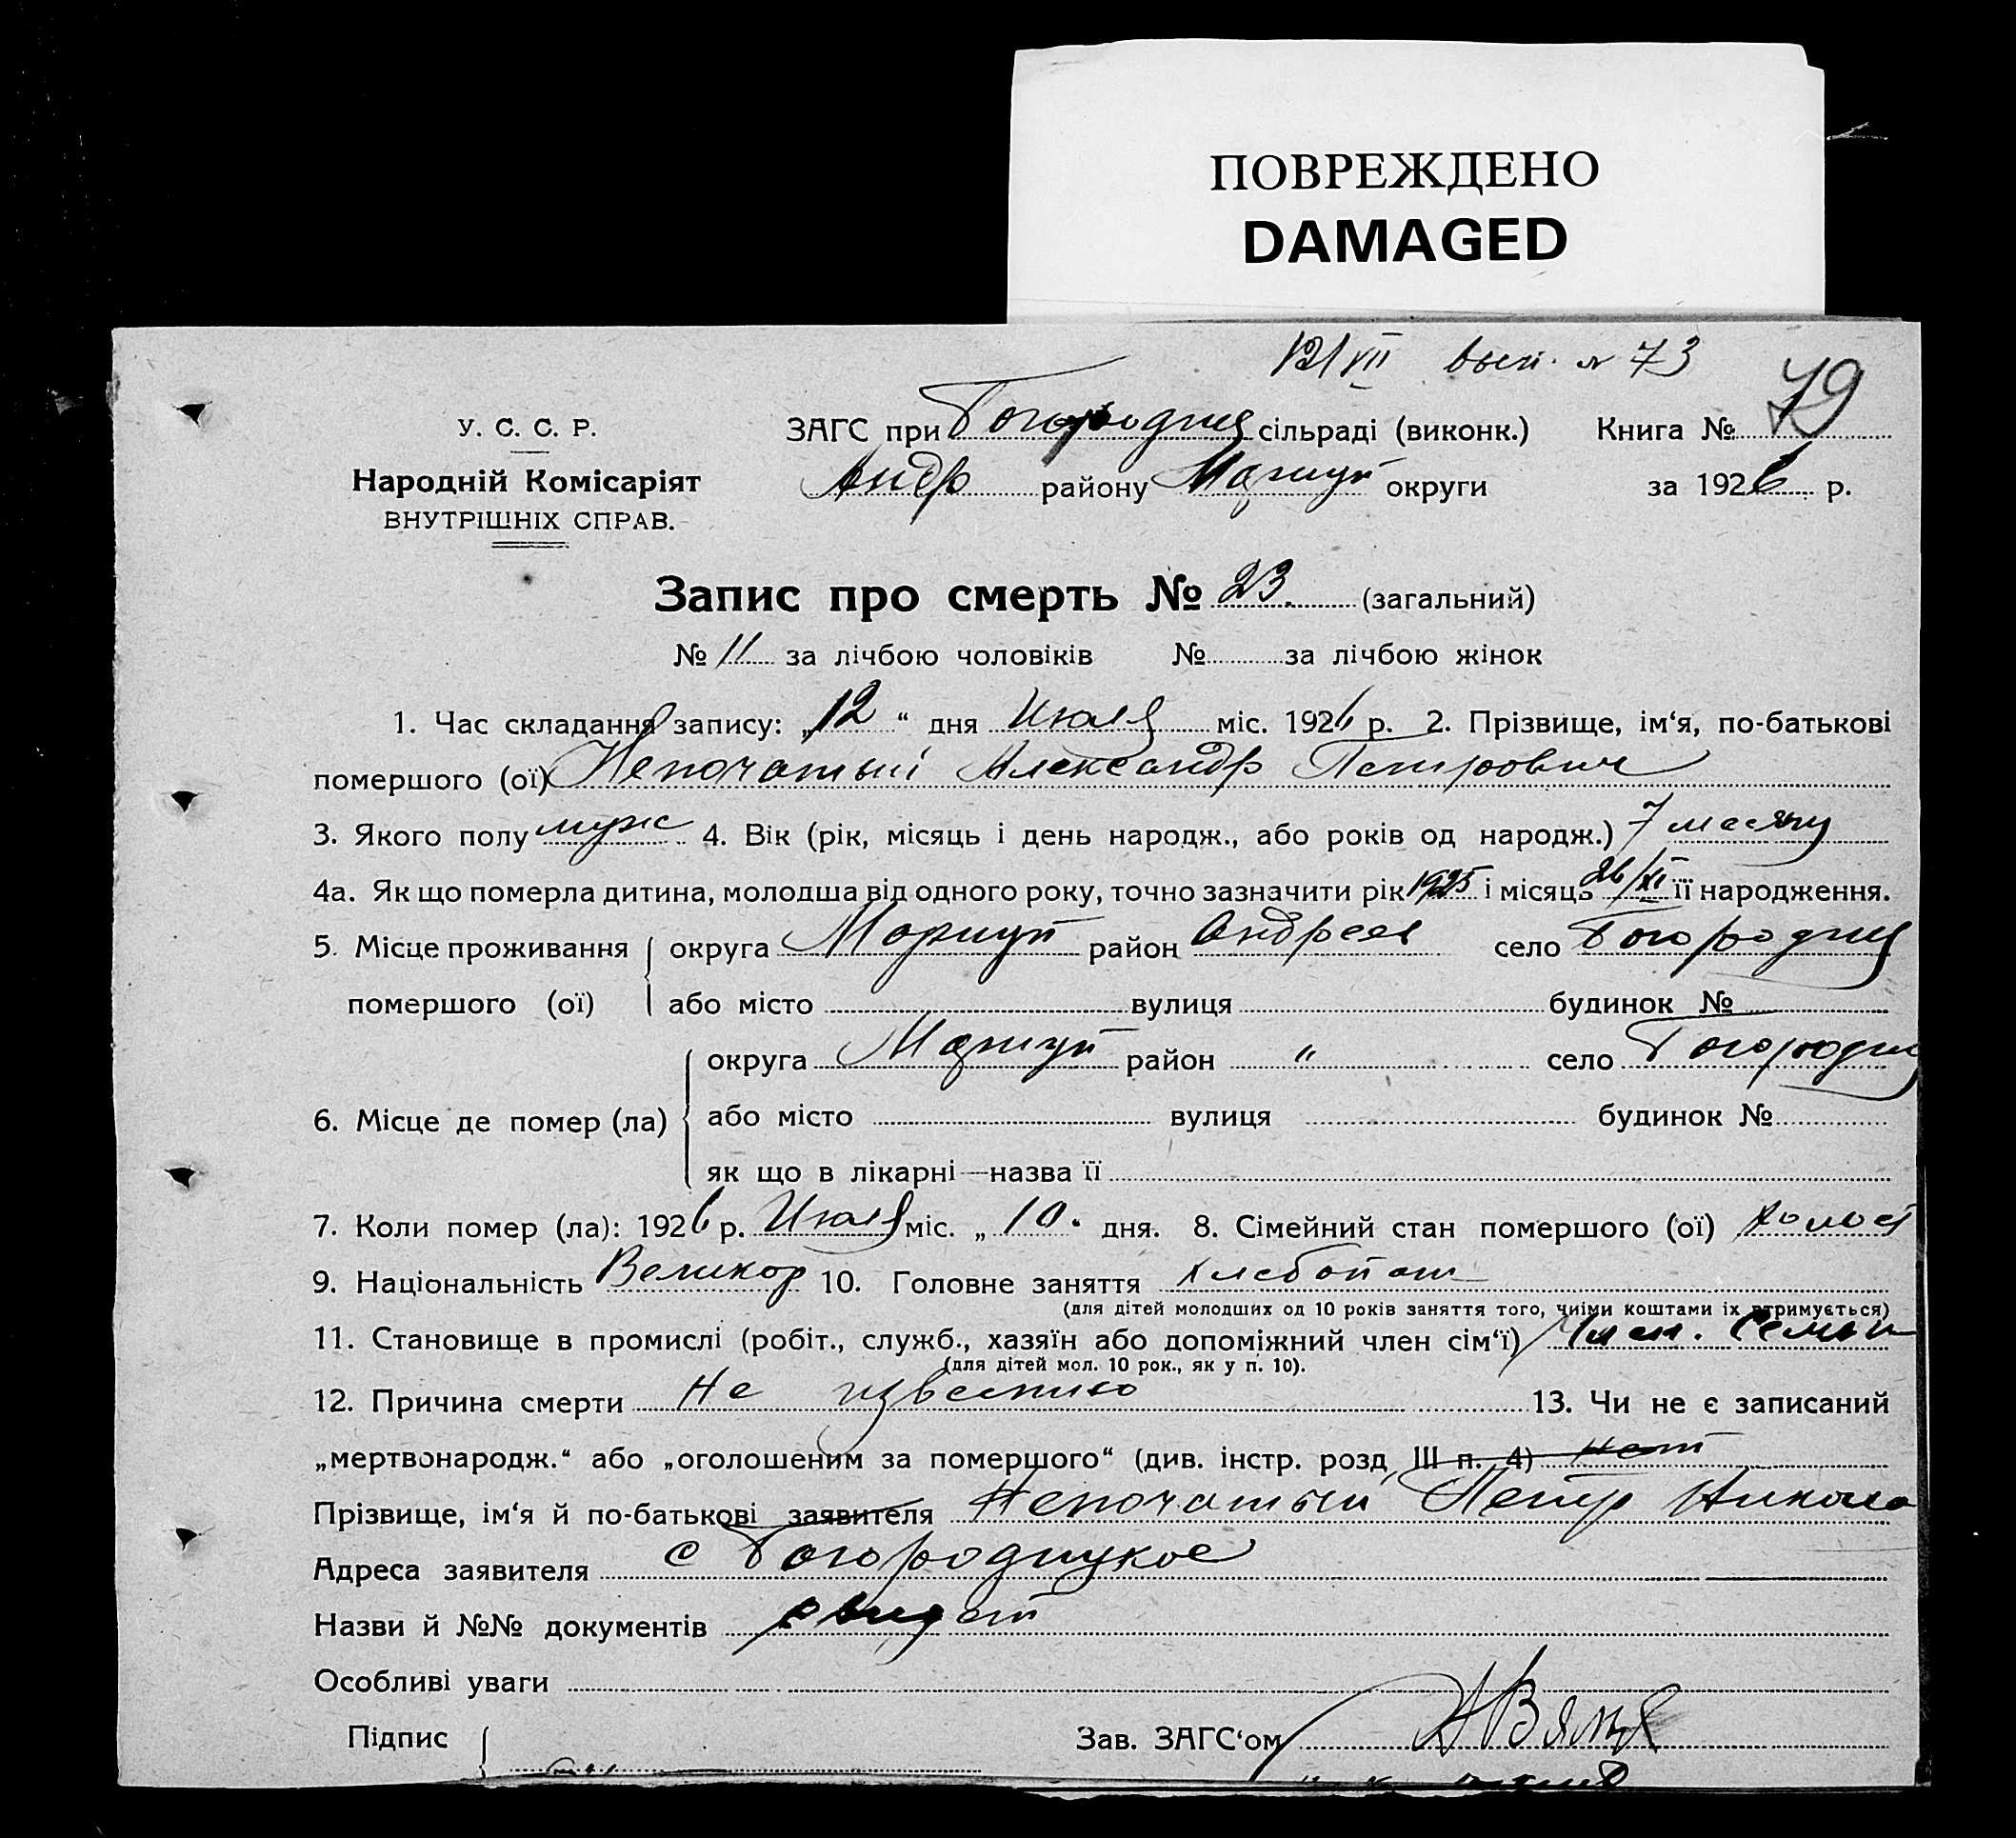 ПОВРЕЖДЕНО
DAMAGED
12/VII вып. № 73
79
У. С. С. Р.
Народній Комісаріят
ВНУТРІШНІХ СПРАВ.
ЗАГС при Богородиц сільраді (виконк.) Книга №
Андр району Мариуп округи за 1926 р.
Запис про смерть № 23. (загальний)
№ 11 за лічбою чоловіків № за лічбою жінок
1. Час складання запису: „12“ дня Июля міс. 1926 р. 2. Прізвище, ім‘я, по-батькові
помершого (ої) Непочатый Александр Петрович
3. Якого полу муж 4. Вік (рік, місяць і день народж., або років од народж.) 7 месяц
4а. Як що померла дитина, молодша від одного року, точно зазначити рік 1925 і місяць 26/XI її народження.
5. Місце проживання округа Мариуп район Андреев село Богородиц
помершого (ої) або місто вулиця будинок №
округа Мариуп район " село Богородиц
6. Місце де помер (ла) або місто вулиця будинок №
як що в лікарні—назва її
7. Коли помер (ла): 1926 р. Июля міс. „10. дня. 8. Сімейний стан помершого (ої) холост
9. Національність Великор 10. Головне заняття хлебопаш
(для дітей молодших од 10 років заняття того, чиїми коштами їх втримується)
11. Становище в промислі (робіт., служб., хазяїн або допоміжний член сім‘ї) Член. Семьи
(для дітей мол. 10 рок., як у п. 10).
12. Причина смерти Не известно 13. Чи не є записаний
„мертвонародж.“ або „оголошеним за помершого“ (див. інстр. розд III п. 4) нет
Прізвище, ім‘я й по-батькові заявителя Непочатый Петр Никола
Адреса заявителя с Богородицкое
Назви й №№ документів
Особливі уваги
Підпис Зав. ЗАГС‘ом